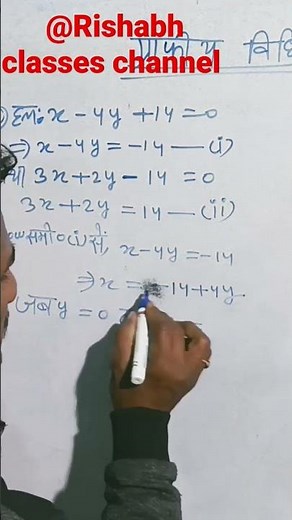 @Rishabh
classes channel
ग्राफीय विधि
हल: x - 4y + 14 = 0
⇒ x - 4y = -14 — (i)
3x + 2y - 14 = 0
3x + 2y = 14 — (ii)
समी० (i) से, x - 4y = -14
⇒ x = -14 + 4y
जब y = 0